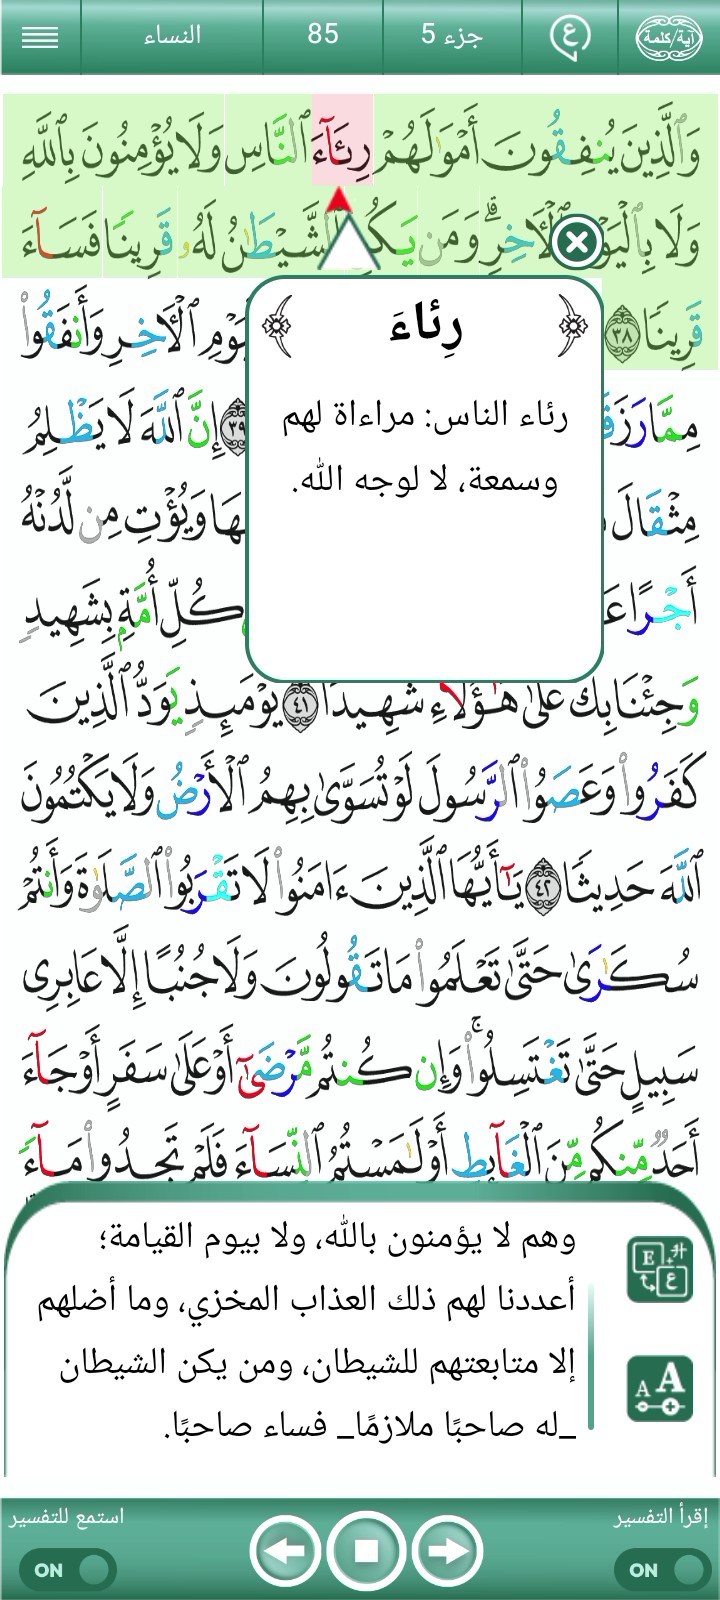 آية/كلمة
ع
جزء 5
85
النساء
وَٱلَّذِينَ يُنفِقُونَ أَمْوَٰلَهُمْ رِئَآءَ ٱلنَّاسِ وَلَا يُؤْمِنُونَ بِٱللَّهِ
وَلَا بِٱلْيَوْمِ ٱلْءَاخِرِ ۗ وَمَن يَكُنِ ٱلشَّيْطَٰنُ لَهُۥ قَرِينًا فَسَآءَ
قَرِينًا ٣٨ يَوْمِ ٱلْءَاخِرِ وَأَنفَقُوا۟
مِمَّا رَزَقَ ٣٩ إِنَّ ٱللَّهَ لَا يَظْلِمُ
مِثْقَالَ هَا وَيُؤْتِ مِن لَّدُنْهُ
أَجْرًا كُلِّ أُمَّةٍۭ بِشَهِيدٍ
وَجِئْنَا بِكَ عَلَىٰ هَٰٓؤُلَآءِ شَهِيدًا ٤١ يَوْمَئِذٍ يَوَدُّ ٱلَّذِينَ
كَفَرُوا۟ وَعَصَوُا۟ ٱلرَّسُولَ لَوْ تُسَوَّىٰ بِهِمُ ٱلْأَرْضُ وَلَا يَكْتُمُونَ
ٱللَّهَ حَدِيثًا ٤٢ يَٰٓأَيُّهَا ٱلَّذِينَ ءَامَنُوا۟ لَا تَقْرَبُوا۟ ٱلصَّلَوٰةَ وَأَنتُمْ
سُكَٰرَىٰ حَتَّىٰ تَعْلَمُوا۟ مَا تَقُولُونَ وَلَا جُنُبًا إِلَّا عَابِرِى
سَبِيلٍ حَتَّىٰ تَغْتَسِلُوا۟ ۚ وَإِن كُنتُم مَّرْضَىٰٓ أَوْ عَلَىٰ سَفَرٍ أَوْ جَآءَ
أَحَدٌ مِّنكُم مِّنَ ٱلْغَآئِطِ أَوْ لَٰمَسْتُمُ ٱلنِّسَآءَ فَلَمْ تَجِدُوا۟ مَآءً
رِئاءَ
رئاء الناس: مراءاة لهم
وسمعة، لا لوجه الله.
وهم لا يؤمنون بالله، ولا بيوم القيامة؛
أعددنا لهم ذلك العذاب المخزي، وما أضلهم
إلا متابعتهم للشيطان، ومن يكن الشيطان
_له صاحبًا ملازمًا_ فساء صاحبًا.
إقرأ التفسير
استمع للتفسير
ON
ON